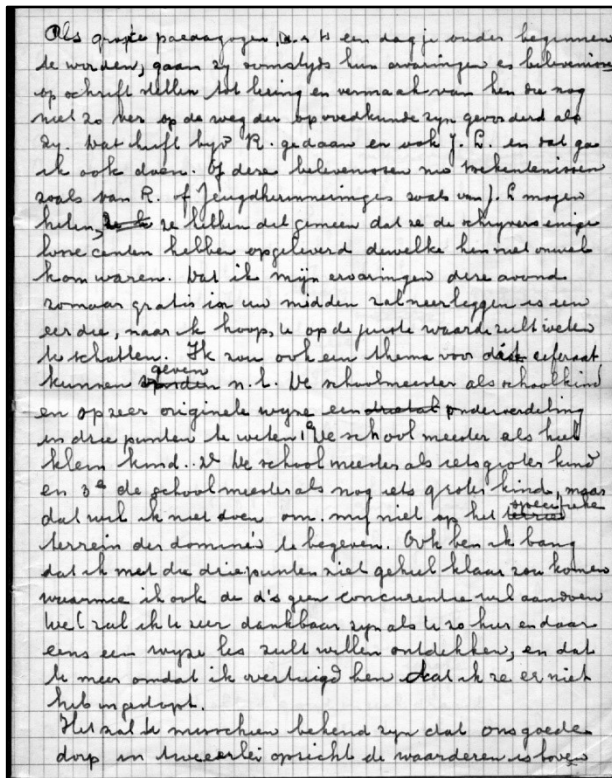 Als grote paedagogen, een dagje ouder beginnen
te worden, gaan zy somtyds hun ervaringen en belevenissen
op schrift stellen tot lering en vermaak van hen die nog
niet zo ver op de weg der opvoedkunde zyn gevorderd als
zy. Dat heeft byv R. gedaan en ook J. L. en dat ga
ik ook doen. Of deze belevenissen nu bekentenissen
zoals van R. of Jeugdherinneringen zoals van J. L mogen
heten, ze hebben dit gemeen dat ze de schryvers enige
losse centen hebben opgeleverd dewelke hen niet onwel
kom waren. Dat ik mijn ervaringen deze avond
zomaar gratis in uw midden zal neerleggen is een
eer die, naar ik hoop, u op de juiste waarde zult weten
te schatten. Ik zou ook een thema voor dit referaat
kunnen geven n.l. De schoolmeester als schoolkind
en op zeer originele wyze een onderverdeling
in drie punten te weten 1e De schoolmeester als heel
klein kind.. 2e De schoolmeester als iets groter kind
en 3e de schoolmeester als nog iets groter kind, maar
dat wil ik niet doen om mij niet op het specifieke
terrein der dominé's te begeven. Ook ben ik bang
dat ik met die driepunten niet geheel klaar zou komen
waarmee ik ook de d's geen concurentie wil aandoen
Wel zal ik u zeer dankbaar zyn als u zo hier en daar
eens een wyze les zult willen ontdekken, en dat
te meer omdat ik overtuigd ben dat ik ze er niet
heb ingestopt.
Het zal u misschien bekend zyn dat ons goede
dorp in tweeerlei opzicht de waarderen is boven